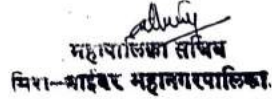 महापालिका सचिव
मिरा-भाईंदर महानगरपालिका.